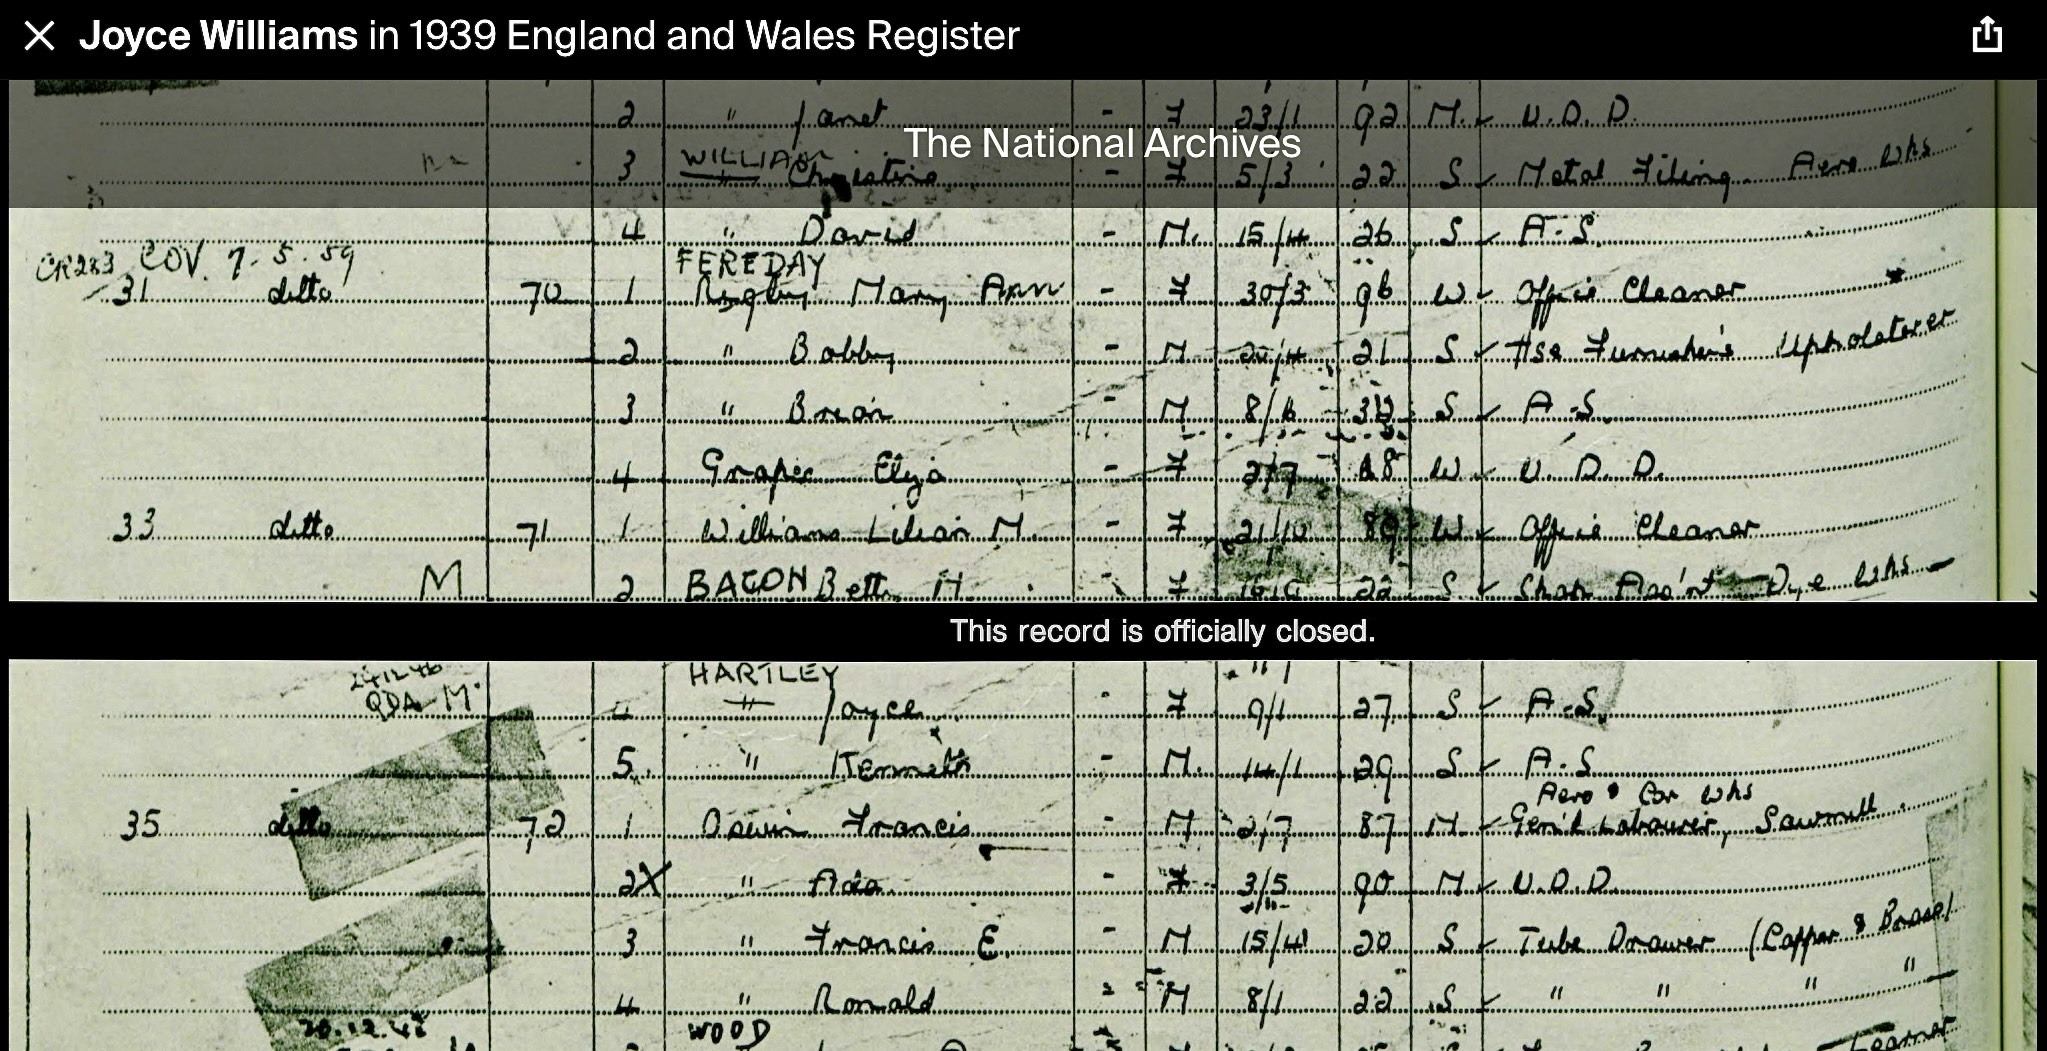 Joyce Williams in 1939 England and Wales Register
2 " Janet - F 23/1 92 M. U.D.D.
The National Archives
WILLIAM
3 " Christine - F 5/3 22 S Metal Filing Aero Wks
4 " David - M. 15/4 26 S A.S.
CR283 COV. 7.5.59
FEREDAY
31 ditto 70 1 Rigby Mary Ann - F 30/3 96 W Office Cleaner
2 " Bobby - M 21 S Hse Furnisher's Upholsterer
3 " Brian - M 8/6 S A.S.
4 Eliza - F 2/7 W U.D.D.
33 ditto 71 1 Williams Lilian M. - F 21/10 89 W Office Cleaner
M 2 BACON Betty M. - F 22 S Shop Ass'nt Dye Wks
This record is officially closed.
HARTLEY
24.12.46
QDA M.
4 " Joyce - F 9/1 27 S A.S.
5 " Kenneth - M. 14/1 29 S A.S
Aero & Car Wks
35 ditto 72 1 Oswin Francis - M 2/7 87 M Gen'l Labourer, Sawmill
2X " Ada - F 3/5 90 M U.D.D.
3 " Francis E. - M 15/4 20 S Tube Drawer (Copper & Brass)
4 " Ronald M 8/1 22 S " " "
WOOD
Learner